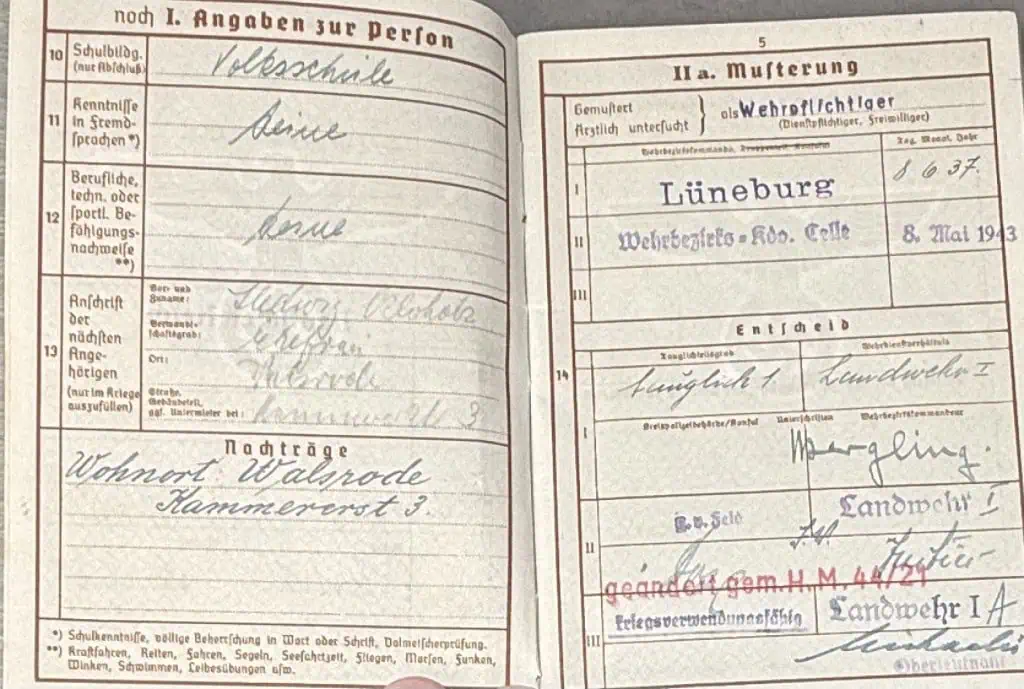 noch I. Angaben zur Person
10 Schulbildg. (nur Abschluß)
Volksschule
11 Kenntnisse in Fremdsprachen *)
keine
12 Berufliche, techn. oder sportl. Befähigungsnachweise **)
keine
13 Anschrift der nächsten Angehörigen (nur im Kriege auszufüllen)
Vor- und Zuname:
Hedwig
Verwandtschaftsgrad:
Ehefrau
Ort:
Walsrode
Straße, Gebäudeteil, ggf. Untermieter bei:
3
Nachträge
Wohnort: Walsrode
Kammererst 3.
*) Schulkenntnisse, völlige Beherrschung in Wort oder Schrift, Dolmetscherprüfung.
**) Kraftfahren, Reiten, Fahren, Segeln, Seeschiffzeit, Fliegen, Morsen, Funken,
Winken, Schwimmen, Leibesübungen usw.
5
II a. Musterung
Gemustert
Ärztlich untersucht
als Wehrpflichtiger
(Dienstpflichtiger, Freiwilliger)
Tag, Monat, Jahr
I
Lüneburg
8 6 37.
II
Wehrbezirks-Kdo. Celle
8. Mai 1943
III
Entscheid
Tauglichkeitsgrad
Wehrdienstverhältnis
14
tauglich 1
Landwehr I
Kreispolizeibehörde/Konsul
Unterschriften
Wehrbezirkskommandeur
I
Mergling.
k.v. Feld
Landwehr I
II
I.V.
geändert gem. H. M. 44/21
III
kriegsverwendungsfähig
Landwehr I A
Oberleutnant